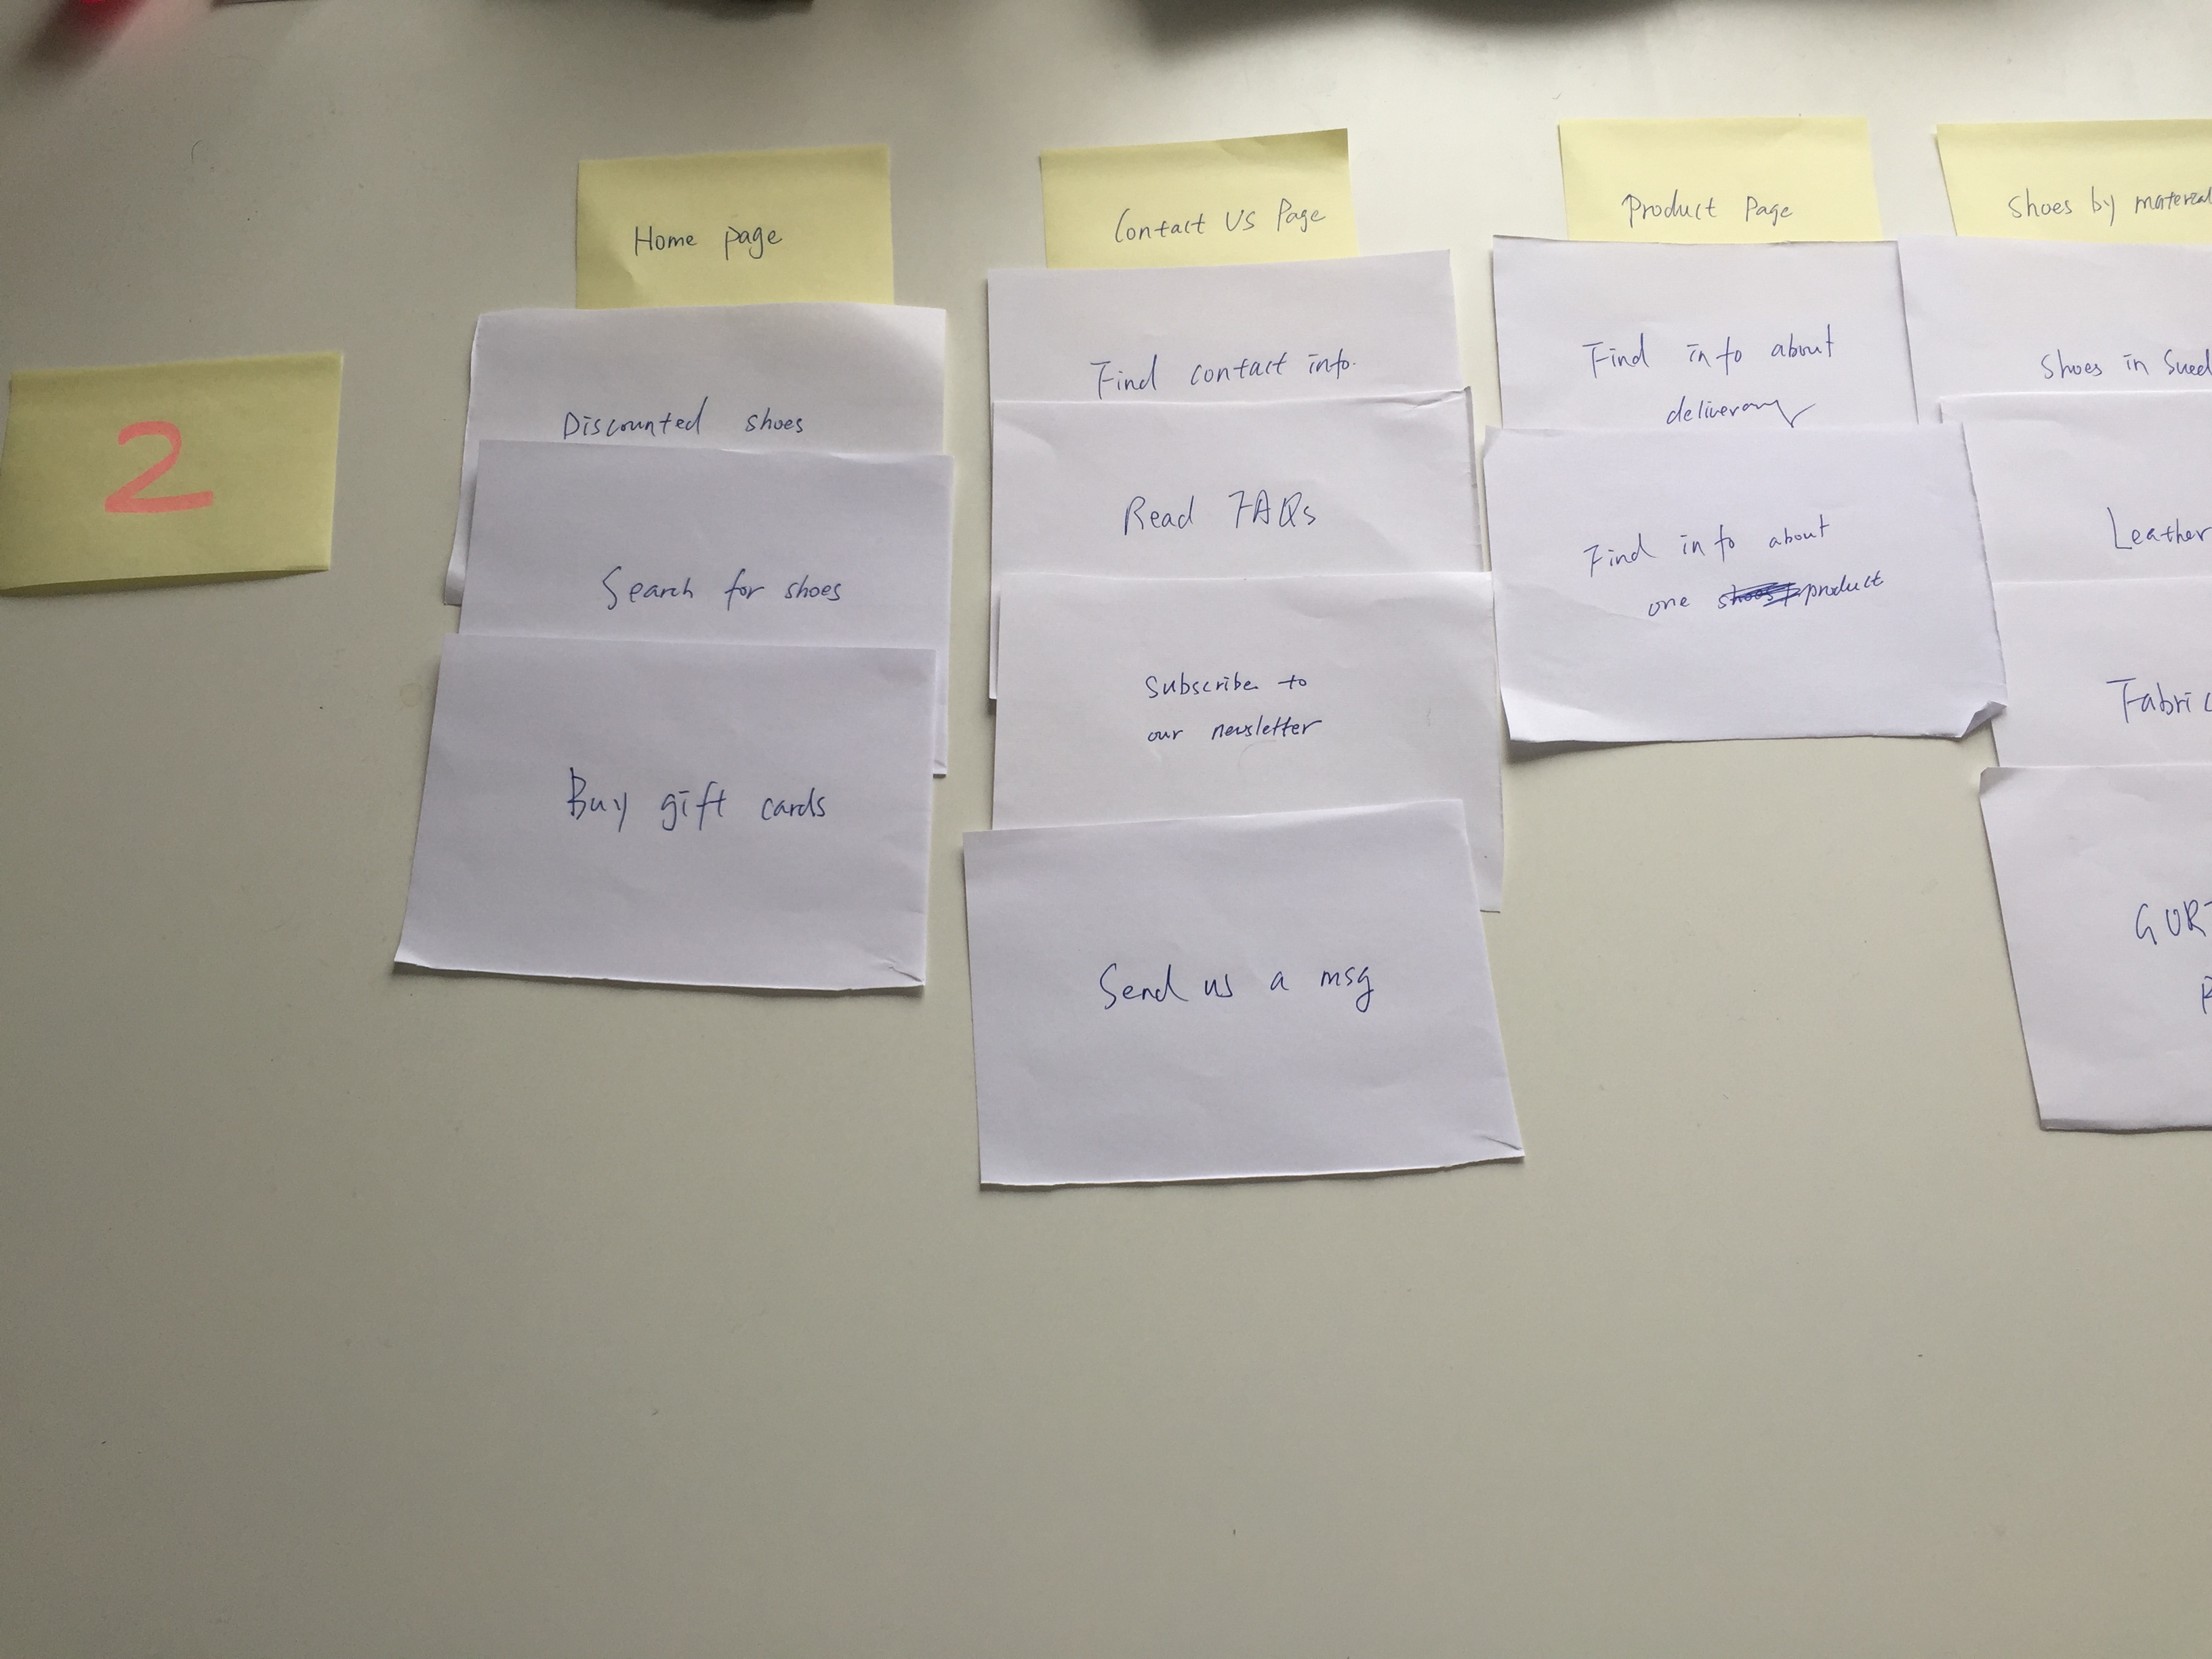 2
Home page
Discounted shoes
Search for shoes
Buy gift cards
Contact Us Page
Find contact info.
Read FAQs
Subscribe to
our newsletter
Send us a msg
Product Page
Find info about
delivery
Find info about
one product
Shoes by
Shoes in
Leather